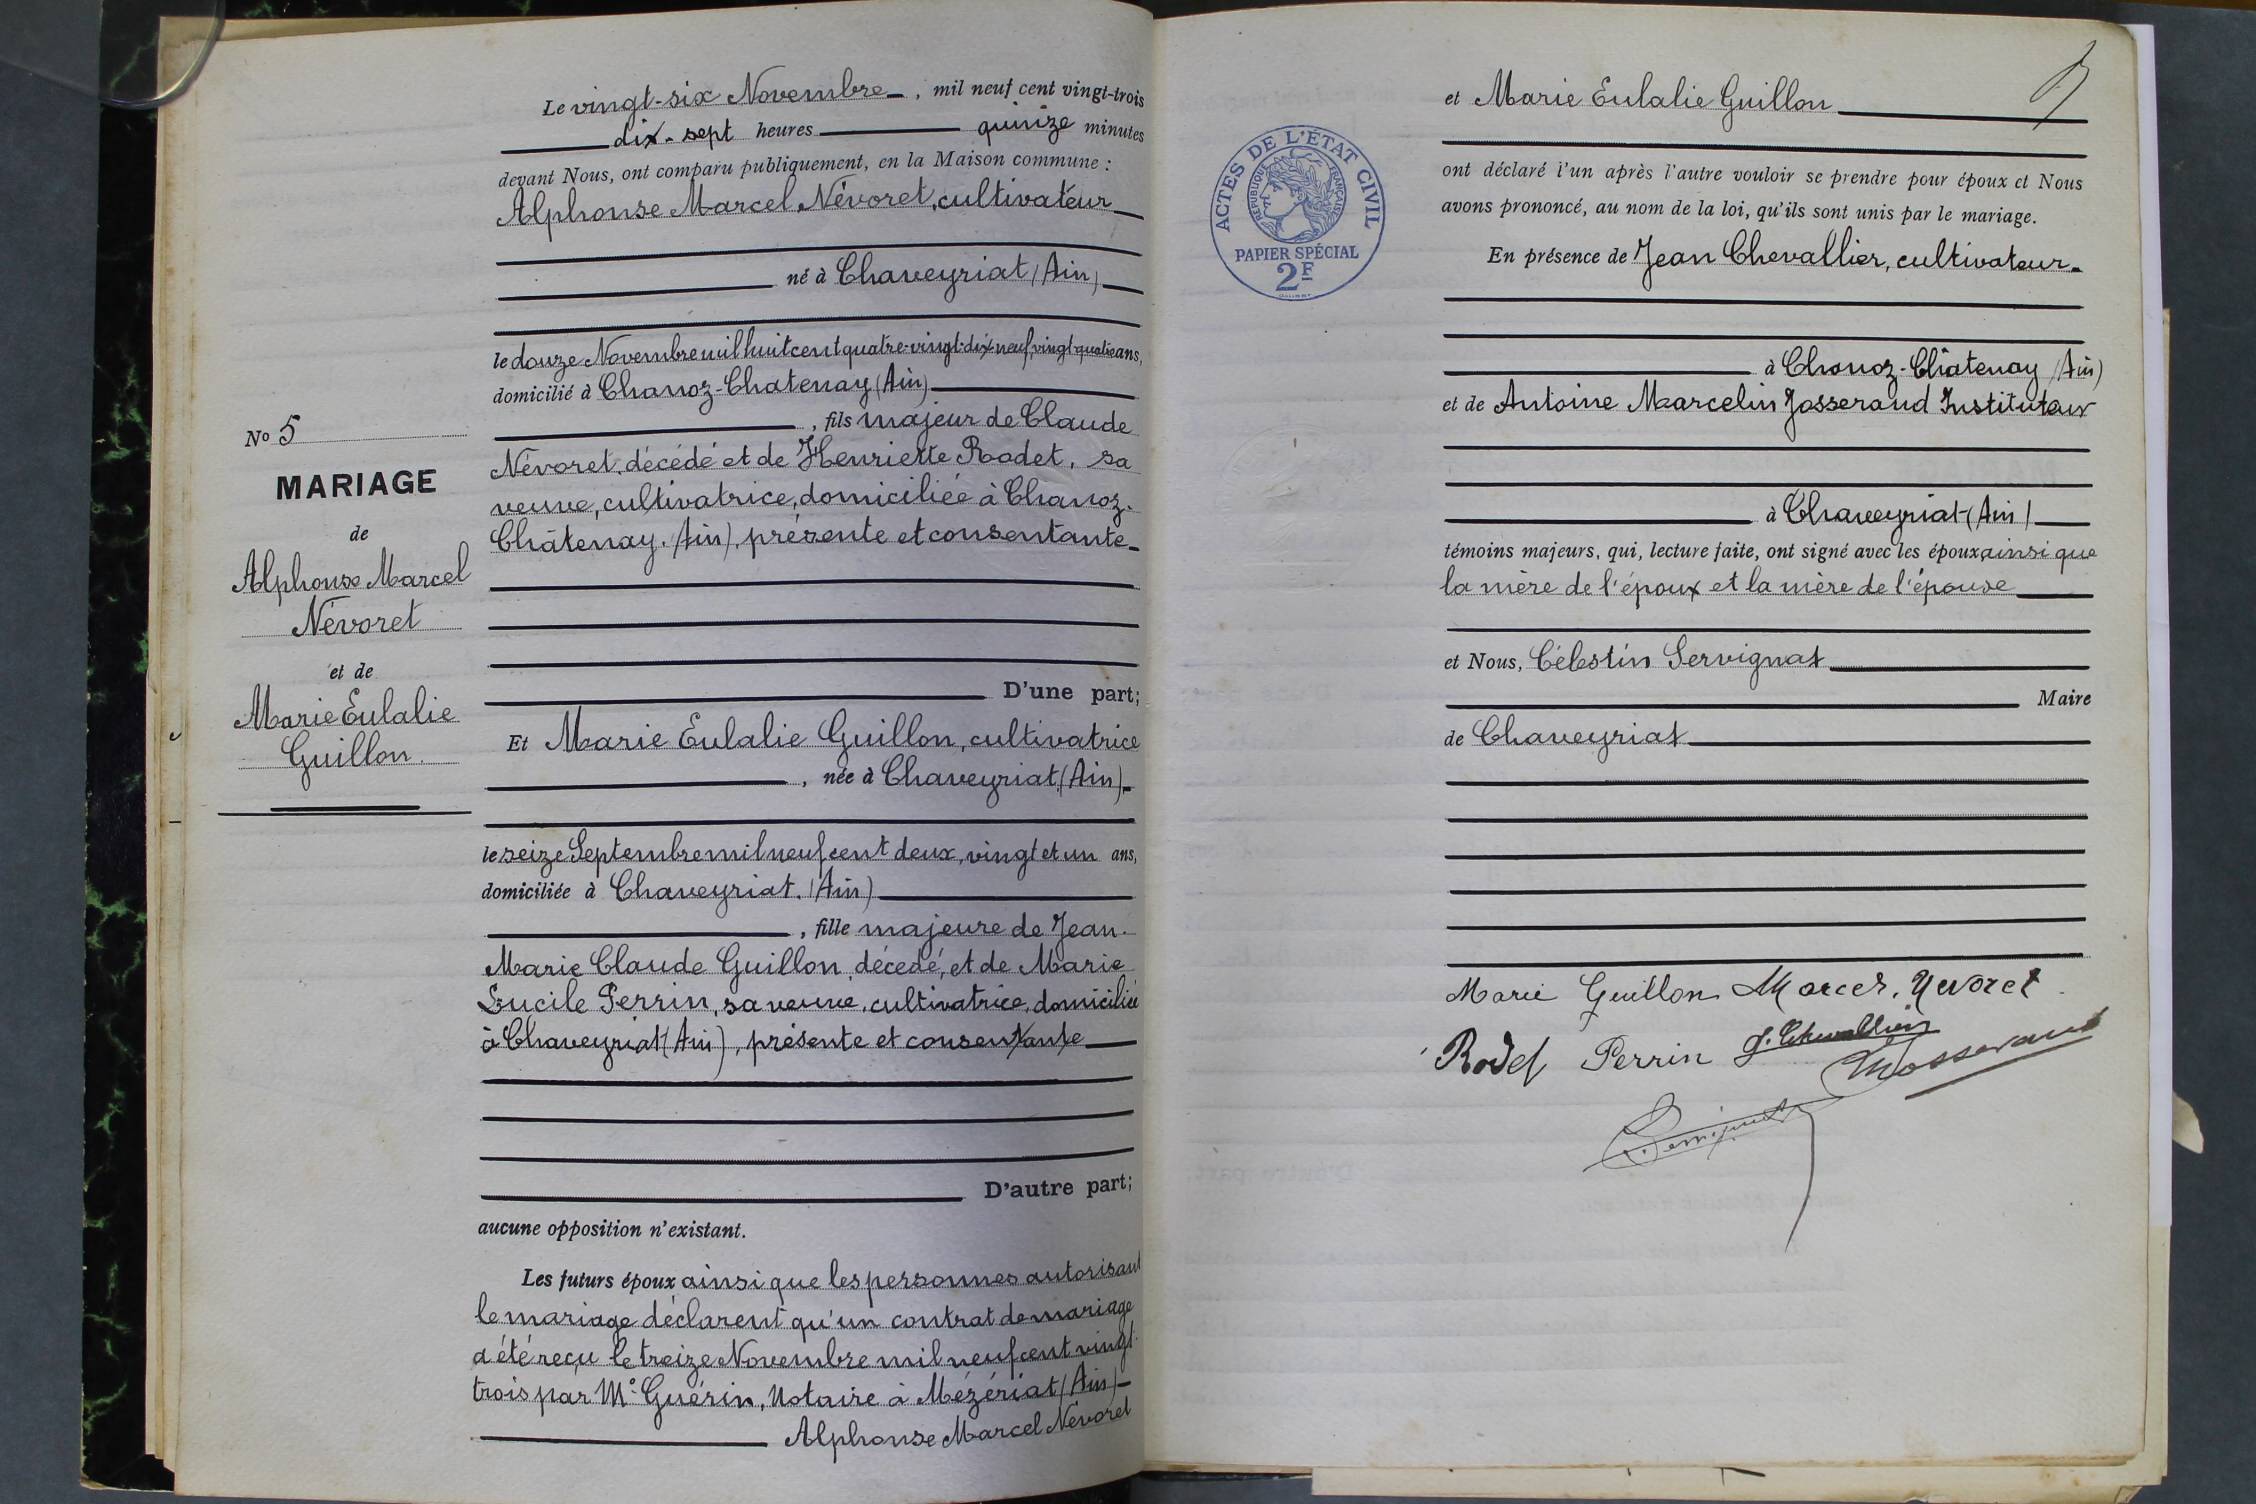 Le vingt-six Novembre, mil neuf cent vingt-trois
dix-sept heures quinze minutes
devant Nous, ont comparu publiquement, en la Maison commune :
Alphonse Marcel Névoret, cultivateur
né à Chaveyriat (Ain)
le douze Novembre mil huit cent quatre-vingt-dix-neuf, vingt-quatre ans,
domicilié à Chanoz-Chatenay (Ain)
, fils majeur de Claude
Névoret, décédé et de Henriette Rodet, sa
veuve, cultivatrice, domiciliée à Chanoz-
Châtenay (Ain), présente et consentante
D'une part;
Et Marie Eulalie Guillon, cultivatrice
, née à Chaveyriat (Ain)
le seize Septembre mil neuf cent deux, vingt et un ans,
domiciliée à Chaveyriat. (Ain)
, fille majeure de Jean-
Marie Claude Guillon, décedé, et de Marie
Lucile Perrin, sa veuve, cultivatrice, domiciliée
à Chaveyriat (Ain), présente et consentante
D'autre part;
aucune opposition n'existant.
Les futurs époux ainsi que les personnes autorisant
le mariage déclarent qu'un contrat de mariage
a été reçu le treize Novembre mil neuf cent vingt-
trois par Me Guérin, Notaire à Mézériat (Ain)
Alphonse Marcel Névoret
No 5
MARIAGE
de
Alphonse Marcel
Névoret
et de
Marie Eulalie
Guillon.
et Marie Eulalie Guillon
ont déclaré l'un après l'autre vouloir se prendre pour époux et Nous
avons prononcé, au nom de la loi, qu'ils sont unis par le mariage.
En présence de Jean Chevallier, cultivateur
à Chanoz-Châtenay (Ain)
et de Antoine Marcelin Josserand Instituteur
à Chaveyriat (Ain)
témoins majeurs, qui, lecture faite, ont signé avec les époux ainsi que
la mère de l'époux et la mère de l'épouse
et Nous, Célestin Servignat
Maire
de Chaveyriat
Marie Guillon Marcel Nevoret
Rodet Perrin J. Chevallier
Josserand
Servignat
ACTES DE L'ÉTAT CIVIL
RÉPUBLIQUE FRANÇAISE
PAPIER SPÉCIAL
2F